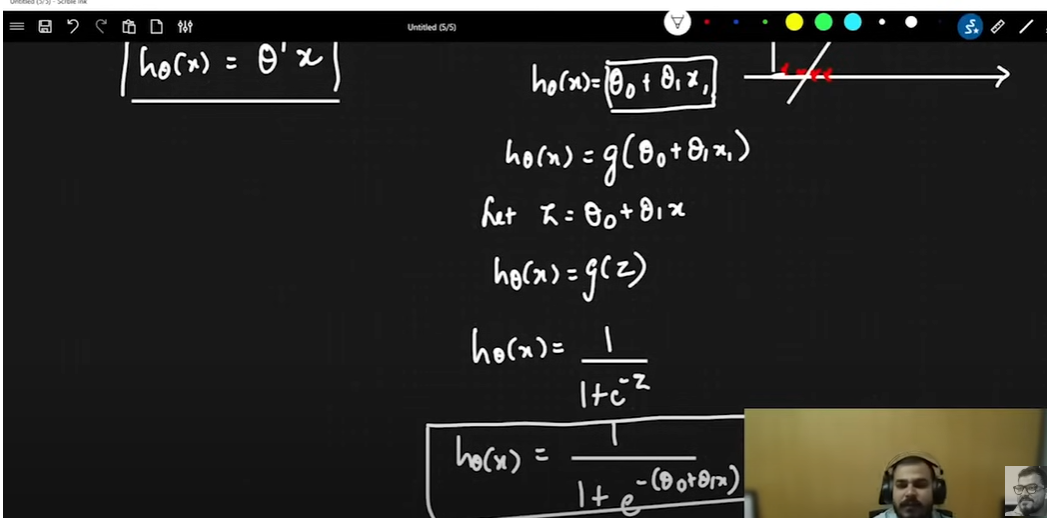 Untitled (5/5) - Scrble Ink
Untitled (5/5)
hθ(x) = θ'x
hθ(x) = θ₀ + θ₁x₁
hθ(x) = g(θ₀ + θ₁x₁)
Let z = θ₀ + θ₁x
hθ(x) = g(z)
hθ(x) = 1 / 1 + e^-z
hθ(x) = 1 / 1 + e^-(θ₀ + θ₁x)